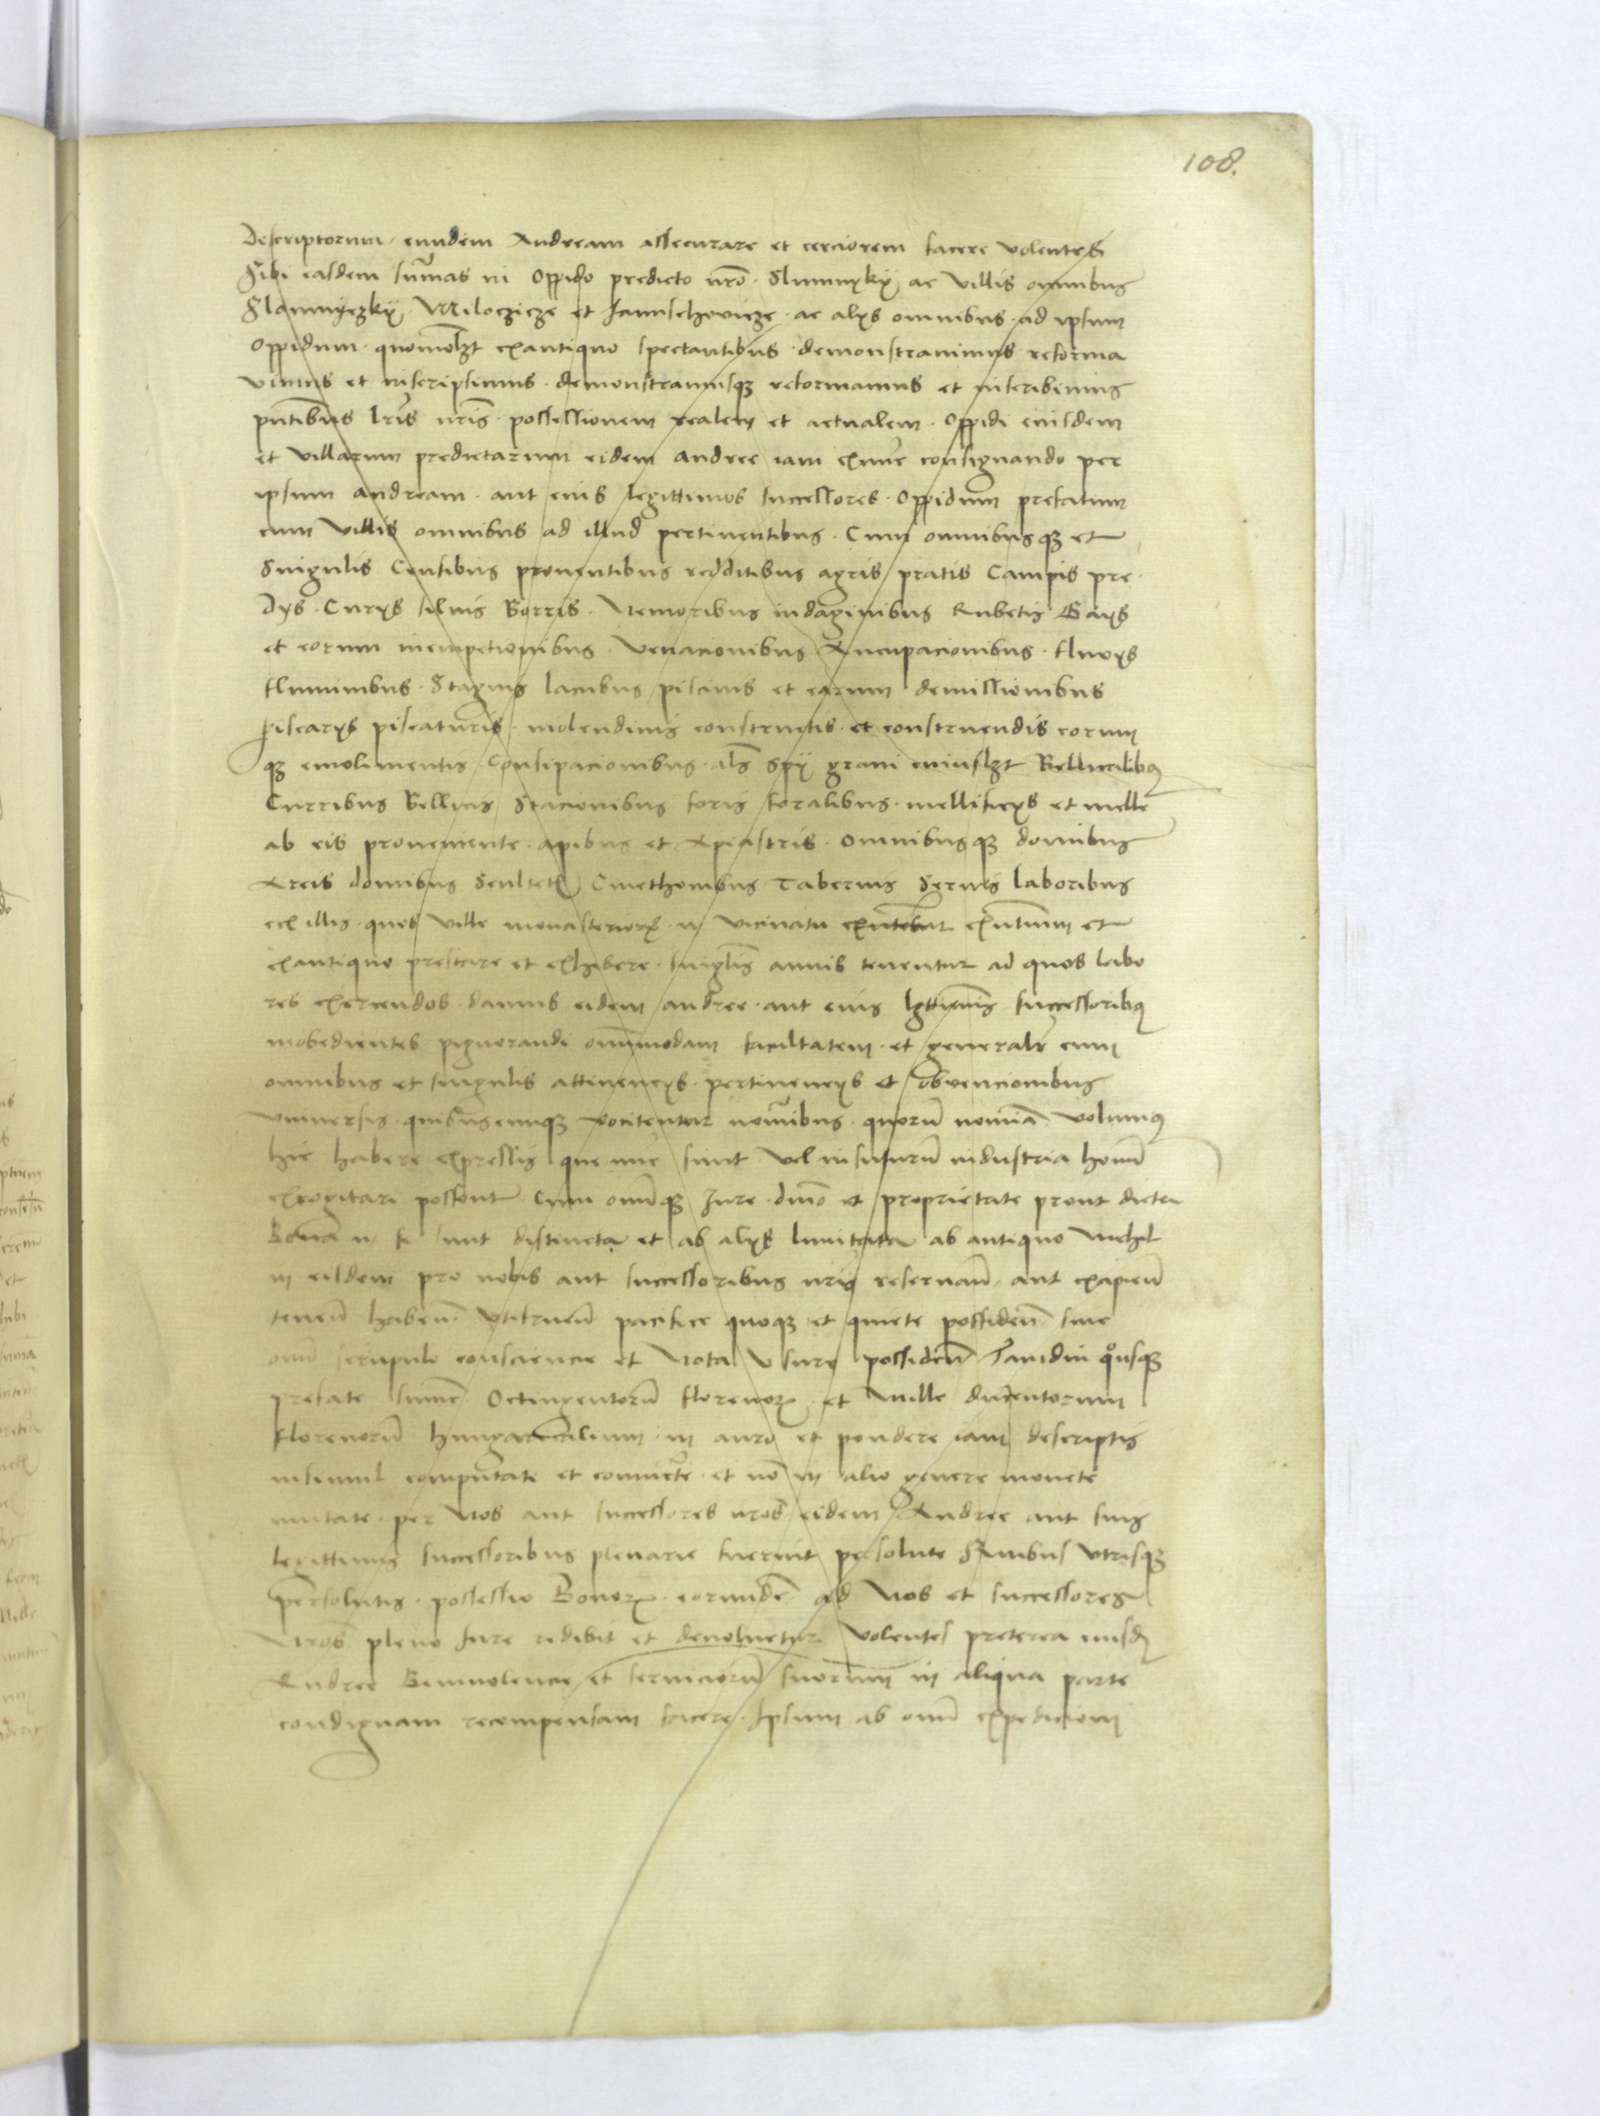 108.
Descriptorum eundem Andream assecurare et cerciorem facere volentes
Sibi easdem sum̄as in Oppido predicto nr̄o Slumnyky ac villis omnibus
Slamnyczky Miloczicze et Januschovicze ac alys omnibus ad ipsum
Oppidum quomol̄zt exantiquo spectantibus demonstravimus reforma
vimus et inscripsimus demonstramusqȝ reformamus et inscribimus
pn̄tibus lr̄is nr̄is possessionem realem et actualem Oppidi eiusdem
et villarum predictarum eidem andree iam exnūc consignando per
ipsum andream aut eius legittimos successores Oppidum prefatum
cum villis omnibus ad illud pertinentibus Cum omnibusqȝ et
Singulis Censibus proventibus redditibus agris pratis Campis pre
dys Curys silvis Borris Nemoribus indaginibus Rubetis Gays
et eorum inempcionibus venacionibus Aucupacionibus fluvys
fluminibus Stagnis lacubus piscinis et earum demissionibus
piscarys piscaturis molendinis constructis et construendis eorum
qȝ emolimentis Constipacionibus al̄s Spy grani cuiuslȝt
Curribus Bellicis Stacionibus foris foralibus mellificys et melle
ab eis proveniente apibus et Apiastris Omnibusqȝ domibus
Areis domibus Scultet Cmethonibus Tabernis Servis laboribus
ex illis quos ville monasteriorꝝ in vicinatu exn̄tium et
exantiquo prestare et exhibere singl̄is annis tenentur ad quos labo
res exercendos damus eidem andree aut eius lgttimis successoribꝰ
inobedientes pignorandi om̄imodam facultatem et generalr̄ cum
omnibus et singulis attinencys pertinencys et obvencionibus
universis quibuscumqȝ vocitentur nominibus quorū nomina volumꝰ
hic habere expressis que nūc sunt vel infuturū industria hoīm
excogitari possent Cum om̄iqȝ Jure dnīo et proprietate prout dicta
Bona in se sunt distincta et ab alys limitata ab antiquo Nichil
in eisdem pro nobis aut successoribus nr̄is reservañ aut excipieñ
teneñ habeñ utifrueñ pacifice quoqȝ et quiete possideñ sine
om̄i scrupulo consciencie et Nota Usure possideñ Tamdiu quousqȝ
prefate sum̄e Octingentorū florenorꝝ et Mille ducentorum
florenorū hungaricalium in auro et pondere iam descriptis
insimul computate et coniuncte et nō in alio genere monete
mutate per Nos aut successores nr̄os eidem Andree aut suis
legittimis successoribus plenarie fuerint persolute Quibus utrisqȝ
persolutis possessio Bonorꝝ eorundē ad Nos et successores
Nr̄os pleno Jure redibit et devolvetur volentes preterea eiusdē
Andree Benivolencie et serviciorū suorum in aliqua parte
condignam recompensam facere Ipsum ab om̄i expedicioni